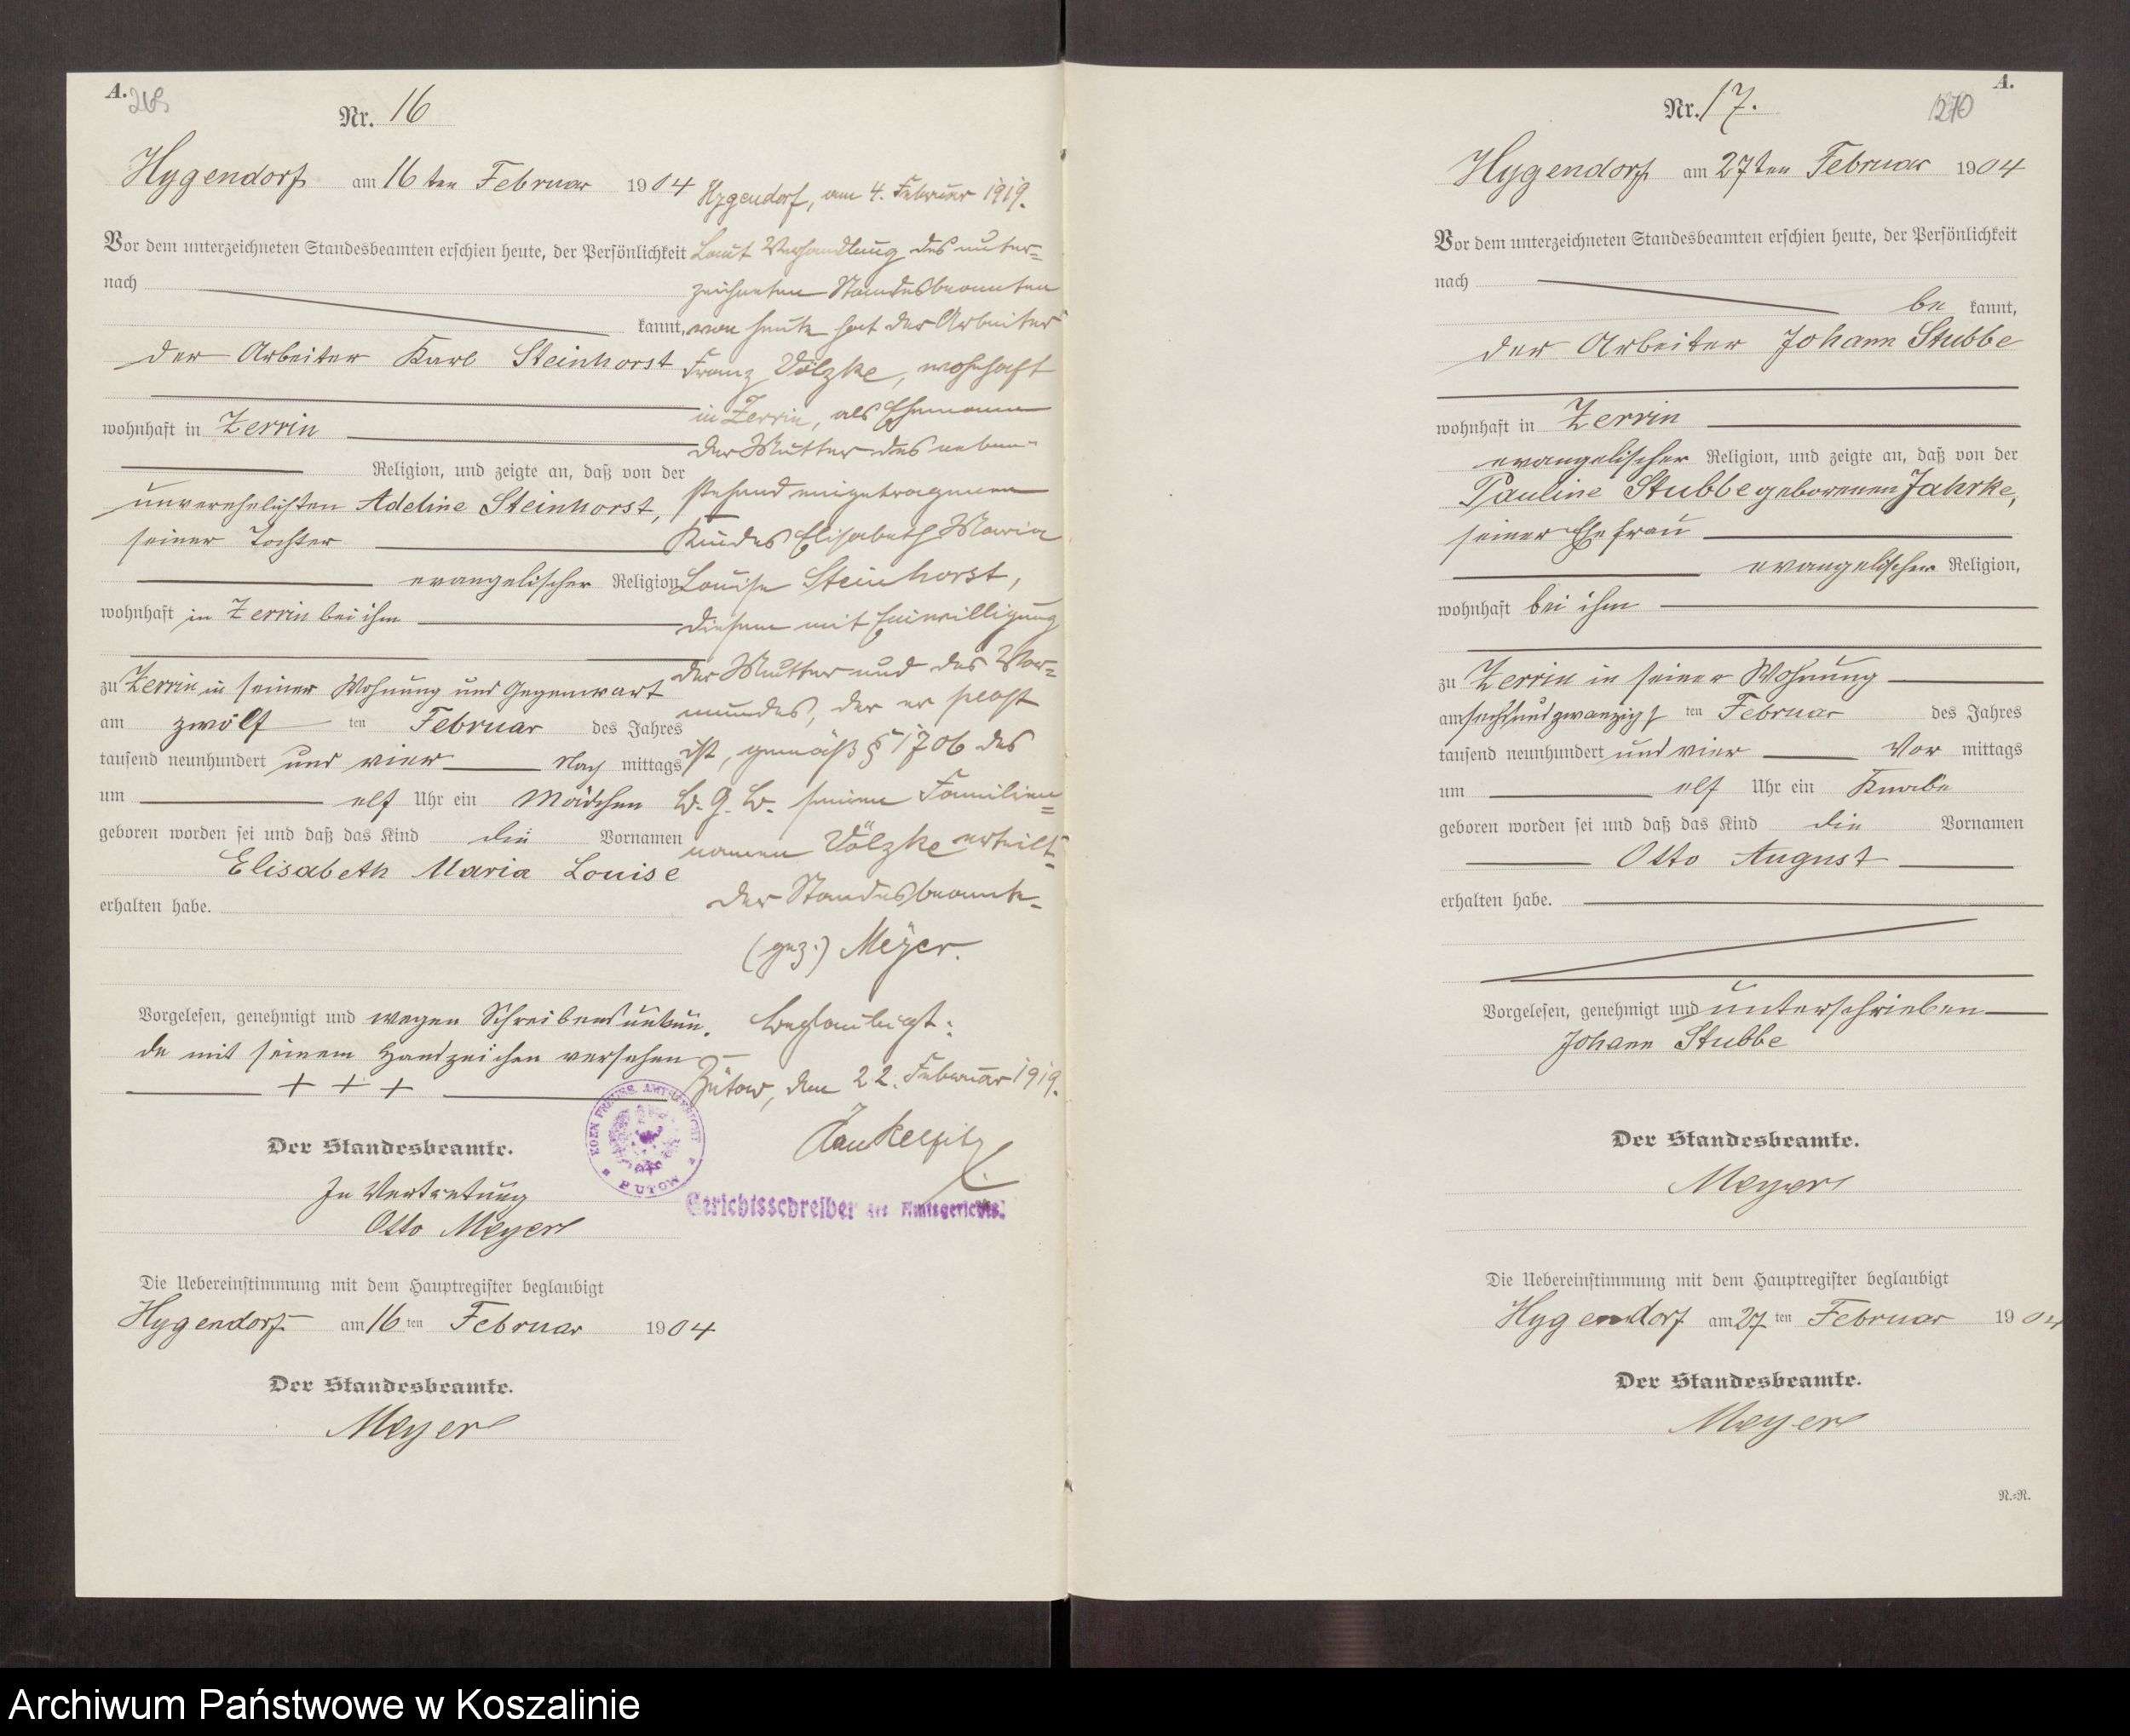 A.
Nr. 16
Hygendorf am 16 ten Februar 1904
Vor dem unterzeichneten Standesbeamten erschien heute, der Persönlichkeit
nach
kannt,
der Arbeiter Karl Steinhorst
wohnhaft in Zerrin
Religion, und zeigte an, daß von der
unverehelichten Adeline Steinhorst,
seiner Tochter
evangelischer Religion
wohnhaft in Zerrin bei ihm
zu Zerrin in seiner Wohnung und Gegenwart
am zwölf ten Februar des Jahres
tausend neunhundert und vier Nach mittags
um elf Uhr ein Mädchen
geboren worden sei und daß das Kind die Vornamen
Elisabeth Maria Louise
erhalten habe.
Vorgelesen, genehmigt und wegen Schreibensunkun
de mit seinem Handzeichen versehen
+ + +
Der Standesbeamte.
In Vertretung
Otto Meyer
Die Uebereinstimmung mit dem Hauptregister beglaubigt
Hygendorf am 16 ten Februar 1904
Der Standesbeamte.
Meyer
Hygendorf, am 4. Februar 1919.
Laut Verhandlung des unter=
zeichneten Standesbeamten
von heute hat der Arbeiter
Franz Völzke, wohnhaft
in Zerrin, als Ehemann
der Mutter des neben-
stehend eingetragenen
Kindes Elisabeth Maria
Louise Steinhorst,
diesem mit Einwilligung
der Mutter und des Vor=
mundes, der er selbst
ist, gemäß § 1706 des
B. G. B. seinen Familien
=
namen Völzke erteilt.
Der Standesbeamte
(gez.) Meyer.
Beglaubigt:
Bütow, den 22. Februar 1919.
KOEN. PREUSS. AMTSGERICHT
BÜTOW
Gerichtsschreiber des Amtsgerichts.
A.
270
Nr. 17.
Hygendorf am 27 ten Februar 1904
Vor dem unterzeichneten Standesbeamten erschien heute, der Persönlichkeit
nach
be kannt,
der Arbeiter Johann Stubbe
wohnhaft in Zerrin
evangelischer Religion, und zeigte an, daß von der
Pauline Stubbe geborenen Jahrke,
seiner Ehefrau
evangelischer Religion,
wohnhaft bei ihm
zu Zerrin in seiner Wohnung
am sechsundzwanzigs ten Februar des Jahres
tausend neunhundert und vier Vor mittags
um elf Uhr ein Knabe
geboren worden sei und daß das Kind die Vornamen
Otto August
erhalten habe.
Vorgelesen, genehmigt und unterschrieben
Johann Stubbe
Der Standesbeamte.
Meyer
Die Uebereinstimmung mit dem Hauptregister beglaubigt
Hygendorf am 27 ten Februar 1904
Der Standesbeamte.
Meyer
N.=N.
Archiwum Państwowe w Koszalinie